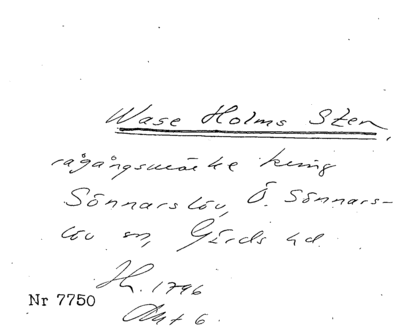 Wase Holms Sten,
rågångsmärke kring
Sönnarslöv, Ö. Sönnars-
löv sn, Gärds hd.
H. 1796
Nr 7750
Akt 6.